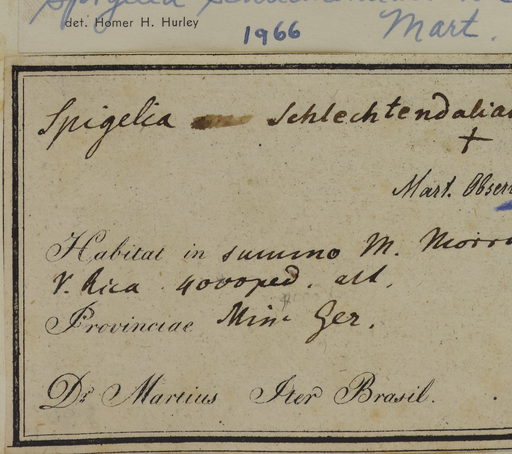 Spigelia
det. Homer H. Hurley
1966
Mart.
Spigelia Schlechtendalian
+
Mart. Obser
Habitat in summo M. Morr
V. Rica 4000ped. alt.
Provinciae Min. Ger.
Dr. Martius Iter Brasil.